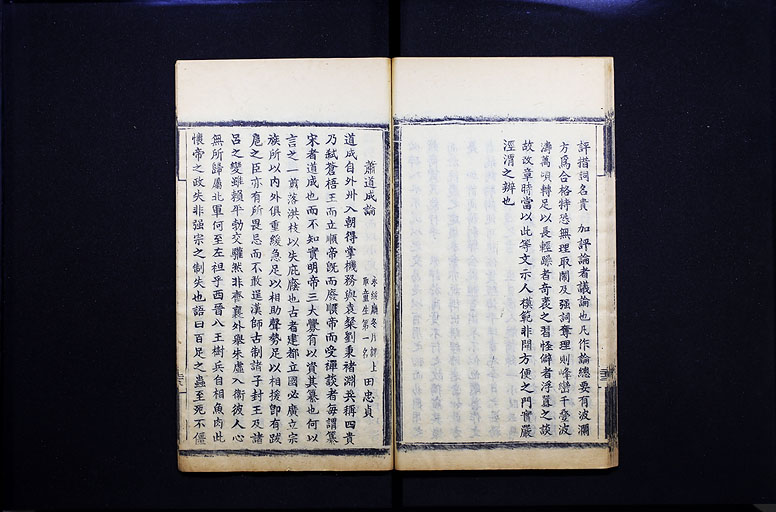 評措詞名貴　加評論者議論也凡作論總要有波瀾
方爲合格特恐無理取鬧及强詞奪理則峰巒千疊波
濤萬頃轉足以長輕躁者奇袤之習怪僻者浮囂之談
故改章時當以此等文示人模範非開方便之門實嚴
涇渭之辨也
蕭道成論
取童生第一名
田忠貞
道成自外州入朝得掌機務與袁粲劉秉褚淵共稱四貴
乃弑蒼梧王而立順帝旣而廢順帝而受禪談者每謂篡
宋者道成也而不知實明帝三大釁有以資其篡也何以
言之一翦落洪枝以失庇廕也古者建都立國必廣立宗
族所以內外俱重緩急足以相助聲勢足以相援卽有跋
扈之臣亦有所畏忌而不敢逞漢師古制諸子封王及諸
呂之變雖賴平勃交驩然非齊襄外舉朱虛入衛彼人心
無所歸屬北軍何至左袒乎西晉八王樹兵自相魚肉此
懷帝之政失非强宗之制失也語曰百足之蟲至死不僵